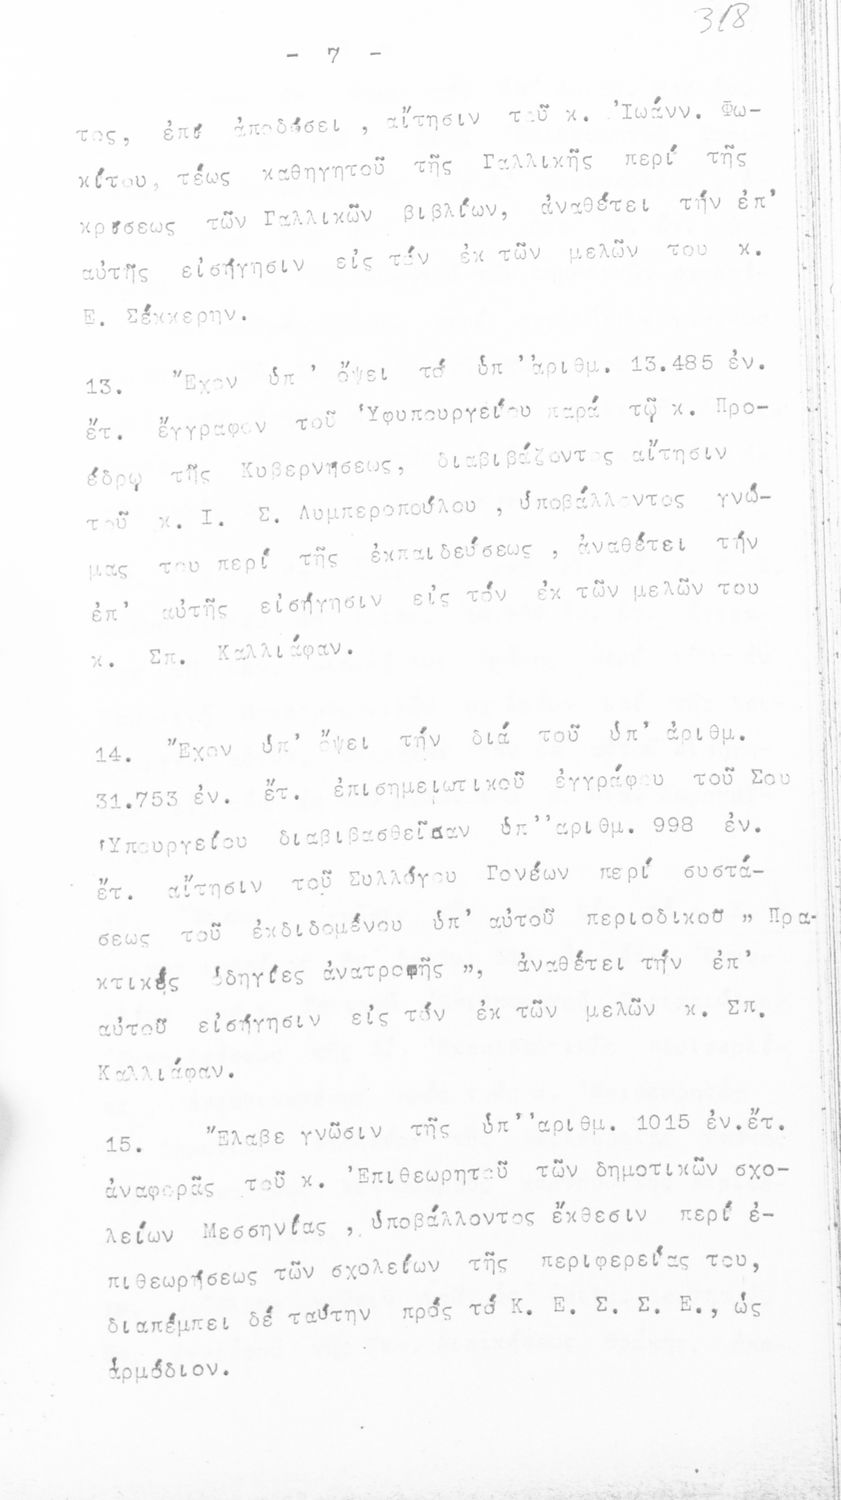 318
- 7 -
τος, ἐπί ἀποδόσει , αἴτησιν τοῦ κ. Ἰωάνν. Φω-
κίτου, τέως καθηγητοῦ τῆς Γαλλικῆς περί τῆς
κρίσεως τῶν Γαλλικῶν βιβλίων, ἀναθέτει τήν ἐπ'
αὐτῆς εἰσήγησιν εἰς τόν ἐκ τῶν μελῶν του κ.
Ε. Σέκκερην.
13. Ἔχον ὑπ ' ὄψει τό ὑπ 'ἀριθμ. 13.485 ἐν.
ἔτ. ἔγγραφον τοῦ Ὑφυπουργείου παρά τῷ κ. Προ-
έδρῳ τῆς Κυβερνήσεως, διαβιβάζοντος αἴτησιν
τοῦ κ. Ι. Σ. Λυμπεροπούλου , ὑποβάλλοντος γνώ-
μας του περί τῆς ἐκπαιδεύσεως , ἀναθέτει τήν
ἐπ' αὐτῆς εἰσήγησιν εἰς τόν ἐκ τῶν μελῶν του
κ. Σπ. Καλλιάφαν.
14. Ἔχον ὑπ' ὄψει τήν διά τοῦ ὑπ' ἀριθμ.
31.753 ἐν. ἔτ. ἐπισημειωτικοῦ ἐγγράφου τοῦ Σου
Ὑπουργείου διαβιβασθεῖσαν ὑπ''αριθμ. 998 ἐν.
ἔτ. αἴτησιν τοῦ Συλλόγου Γονέων περί συστά-
σεως τοῦ ἐκδιδομένου ὑπ' αὐτοῦ περιοδικοῦ " Πρα-
κτικές ὁδηγίες ἀνατροφῆς ", ἀναθέτει τήν ἐπ'
αὐτοῦ εἰσήγησιν εἰς τόν ἐκ τῶν μελῶν κ. Σπ.
Καλλιάφαν.
15. Ἔλαβε γνῶσιν τῆς ὑπ''αριθμ. 1015 ἐν.ἔτ.
ἀναφορᾶς τοῦ κ. Ἐπιθεωρητοῦ τῶν δημοτικῶν σχο-
λείων Μεσσηνίας , ὑποβάλλοντος ἔκθεσιν περί ἐ-
πιθεωρήσεως τῶν σχολείων τῆς περιφερείας του,
διαπέμπει δέ ταύτην πρός τό Κ. Ε. Σ. Σ. Ε., ὡς
ἁρμόδιον.